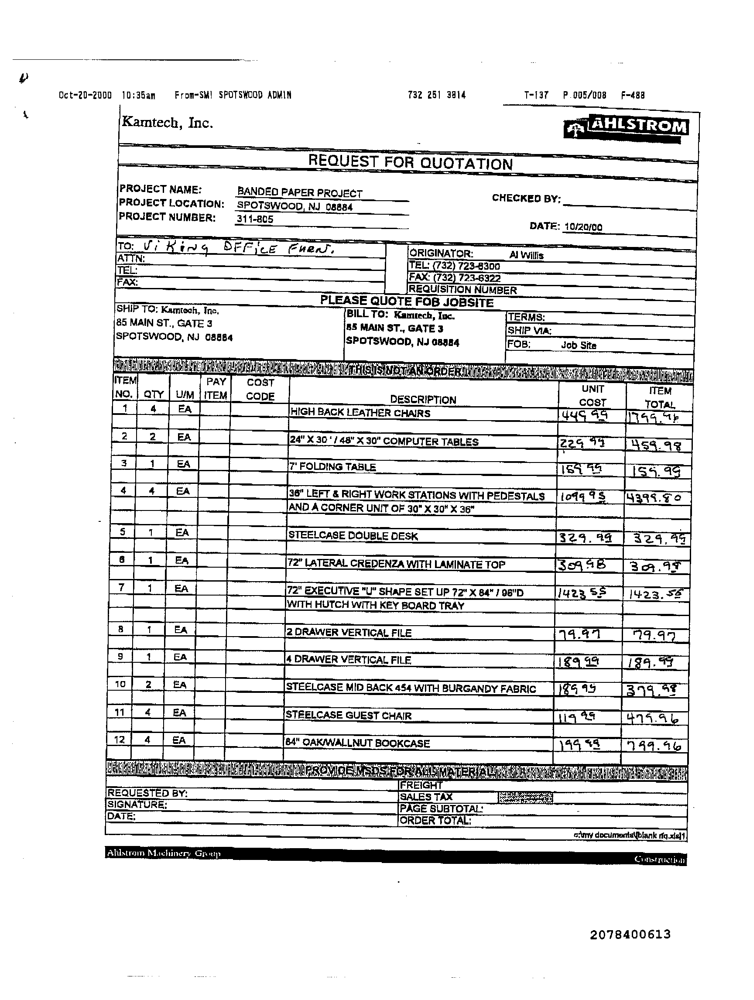 Oct-20-2000 10:35am From-SMI SPOTSWOOD ADMIN 732 251 3814 T-137 P.005/008 F-488
Kamtech, Inc. AHLSTROM
REQUEST FOR QUOTATION
PROJECT NAME: BANDED PAPER PROJECT
PROJECT LOCATION: SPOTSWOOD, NJ 08884
PROJECT NUMBER: 311-805
CHECKED BY:
DATE: 10/20/00
TO: Viking OFFiCE FURN.
ATTN:
TEL:
FAX:
ORIGINATOR: Al Willis
TEL: (732) 723-6300
FAX: (732) 723-6322
REQUISITION NUMBER
PLEASE QUOTE FOB JOBSITE
SHIP TO: Kamtech, Inc.
85 MAIN ST., GATE 3
SPOTSWOOD, NJ 08884
BILL TO: Kamtech, Inc.
85 MAIN ST., GATE 3
SPOTSWOOD, NJ 08884
TERMS:
SHIP VIA:
FOB: Job Site
THIS IS NOT AN ORDER
ITEM NO. QTY U/M PAY ITEM COST CODE DESCRIPTION UNIT COST ITEM TOTAL
1 4 EA HIGH BACK LEATHER CHAIRS 449 99 1799.96
2 2 EA 24" X 30 ' / 48" X 30" COMPUTER TABLES 229 99 459.98
3 1 EA 7' FOLDING TABLE 159 99 159.99
4 4 EA 36" LEFT & RIGHT WORK STATIONS WITH PEDESTALS 1099 95 4399.80
AND A CORNER UNIT OF 30" X 30" X 36"
5 1 EA STEELCASE DOUBLE DESK 329.99 329.99
6 1 EA 72" LATERAL CREDENZA WITH LAMINATE TOP 309 98 309.98
7 1 EA 72" EXECUTIVE "U" SHAPE SET UP 72" X 84" / 96"D 1423 55 1423.55
WITH HUTCH WITH KEY BOARD TRAY
8 1 EA 2 DRAWER VERTICAL FILE 79.97 79.97
9 1 EA 4 DRAWER VERTICAL FILE 189 99 189.99
10 2 EA STEELCASE MID BACK 454 WITH BURGANDY FABRIC 189 99 379.98
11 4 EA STEELCASE GUEST CHAIR 119 99 479.96
12 4 EA 84" OAK/WALLNUT BOOKCASE 199 99 799.96
PROVIDE MSDS FOR ALL MATERIAL
REQUESTED BY:
SIGNATURE:
DATE:
FREIGHT
SALES TAX
PAGE SUBTOTAL:
ORDER TOTAL:
c:\my documents\[blank rfq.xls]1
Ahlstrom Machinery Group Construction
2078400613